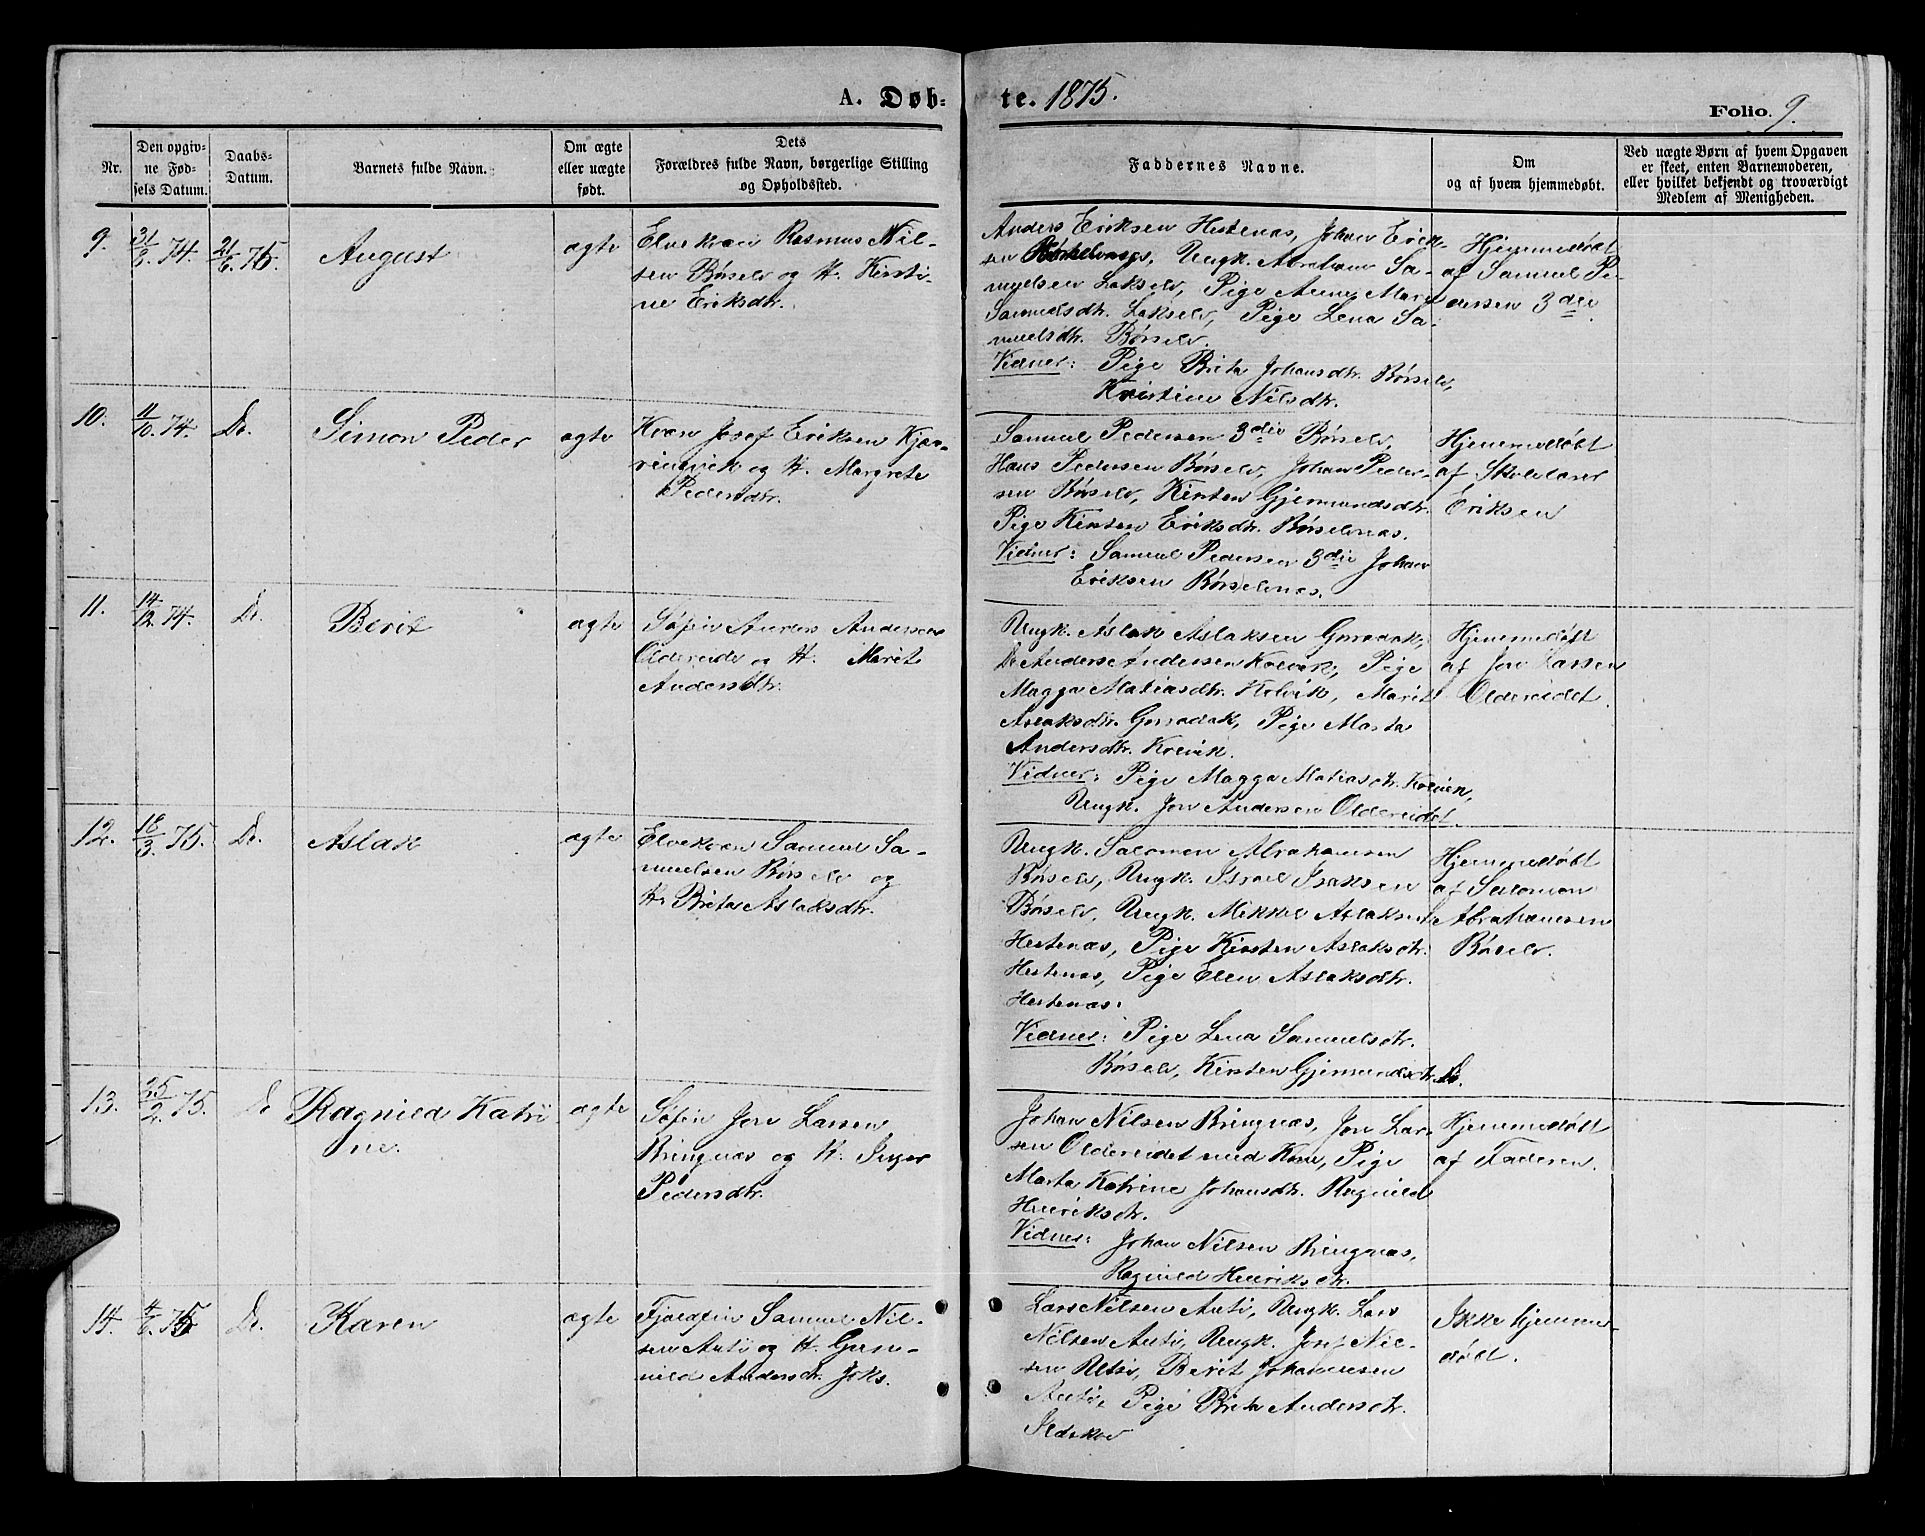 A. Døb-
te. 1875.
Folio. 9.
Nr.
Den opgiv-
ne Fød-
sels Datum.
Daabs-
Datum.
Barnets fulde Navn.
Om ægte
eller uægte
født.
Dets
Forældres fulde Navn, borgerlige Stilling
og Opholdssted.
Faddernes Navne.
Om
og af hvem hjemmedøbt.
Ved uægte Børn af hvem Opgaven
er skeet, enten Barnemoderen,
eller hvilket bekjendt og troværdigt
Medlem af Menigheden.
9.
74.
21/6 75.
August
ægte
Elvekvæn Rasmus Nil-
sen Børselv og H. Kirsti-
ne Eriksdtr.
Anders Eriksen Hestenæs, Johan Erik-
sen Børselvnæs, Ungk. Abraham Sa-
muelsen Lakselv, Pige Anne Maret
Samuelsdtr. Lakselv, Pige Lena Sa-
muelsdtr. Børselv.
Vidner: Pige Brita Johansdtr. Børselv,
Kristine Nilsdtr.
Hjemmedøbt
af Samuel Pe-
dersen 3die.
10.
11/10 74.
Do.
Simon Peder
ægte
Kvæn Josef Eriksen Kjær-
ringvik og H. Margrete
Pedersdtr.
Samuel Pedersen 3die Børselv,
Hans Pedersen Børselv, Johan Peder-
sen Børselv, Kirsten Gjermundsdtr.
Pige Kirsten Eriksdtr. Børselvnæs.
Vidner: Samuel Pedersen 3die Johan
Eriksen Børselvnæs.
Hjemmedøbt
af Skolelærer
Eriksen
11.
14/12 74.
Do.
Berit
ægte
Søfin Anders Andersen
Oldereide og H. Marit
Andersdtr.
Ungk. Aslak Aslaksen Gorradak,
Do Anders Andersen Kolvik, Pige
Magga Matiasdtr. Kolvik, Marit
Aslaksdtr. Gorradak, Pige Marta
Andersdtr. Kolvik.
Vidner: Pige Magga Matiasdtr. Kolvik,
Ungk. Jon Andersen Oldereidet.
Hjemmedøbt
af Jon Larsen
Oldereidet.
12.
18/3 75.
Do.
Aslak
ægte
Elvekvæn Samuel Sa-
muelsen Børselv og
H. Brita Aslaksdtr.
Ungk. Salomon Abrahamsen
Børselv, Ungk. Israel Isaksen
Børselv, Ungk. Mikkel Aslaksen
Hestenæs, Pige Kirsten Aslaksdtr.
Hestenæs, Pige Elen Aslaksdtr.
Hestenæs.
Vidner: Pige Lena Samuelsdtr.
Børselv, Kirsten Gjermundsdtr. Do.
Hjemmedøbt
af Salomon
Abrahamsen
Børselv.
13.
25/2 75.
Do
Ragnild Katri-
ne.
ægte
Søfin Jon Larsen
Bringnæs og H. Inger
Pedersdtr.
Johan Nilsen Bringnæs, Jon Lar-
sen Oldereidet med Kone, Pige
Marta Katrine Johansdtr. Ragnild
Henriksdtr.
Vidner: Johan Nilsen Bringnæs,
Ragnild Henriksdtr.
Hjemmedøbt
af Faderen.
14.
4/6 75
Do.
Karen
ægte
Fjeldfin Samuel Nil-
sen Anti og H. Gun-
nild Andersdtr. Joks.
Lars Nilsen Anti, Ungk. Lars
Nilsen Anti, Ungk. Josef Nil-
sen Utsi, Berit Johannesen
Anti, Pige Brita Andersdtr.
Ikke hjemme-
døbt.